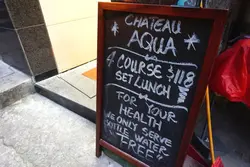 CHATEAU
AQUA
4 COURSE $118
SET LUNCH
FOR YOUR
HEALTH
WE ONLY SERVE
BOTTLE WATER
FREE